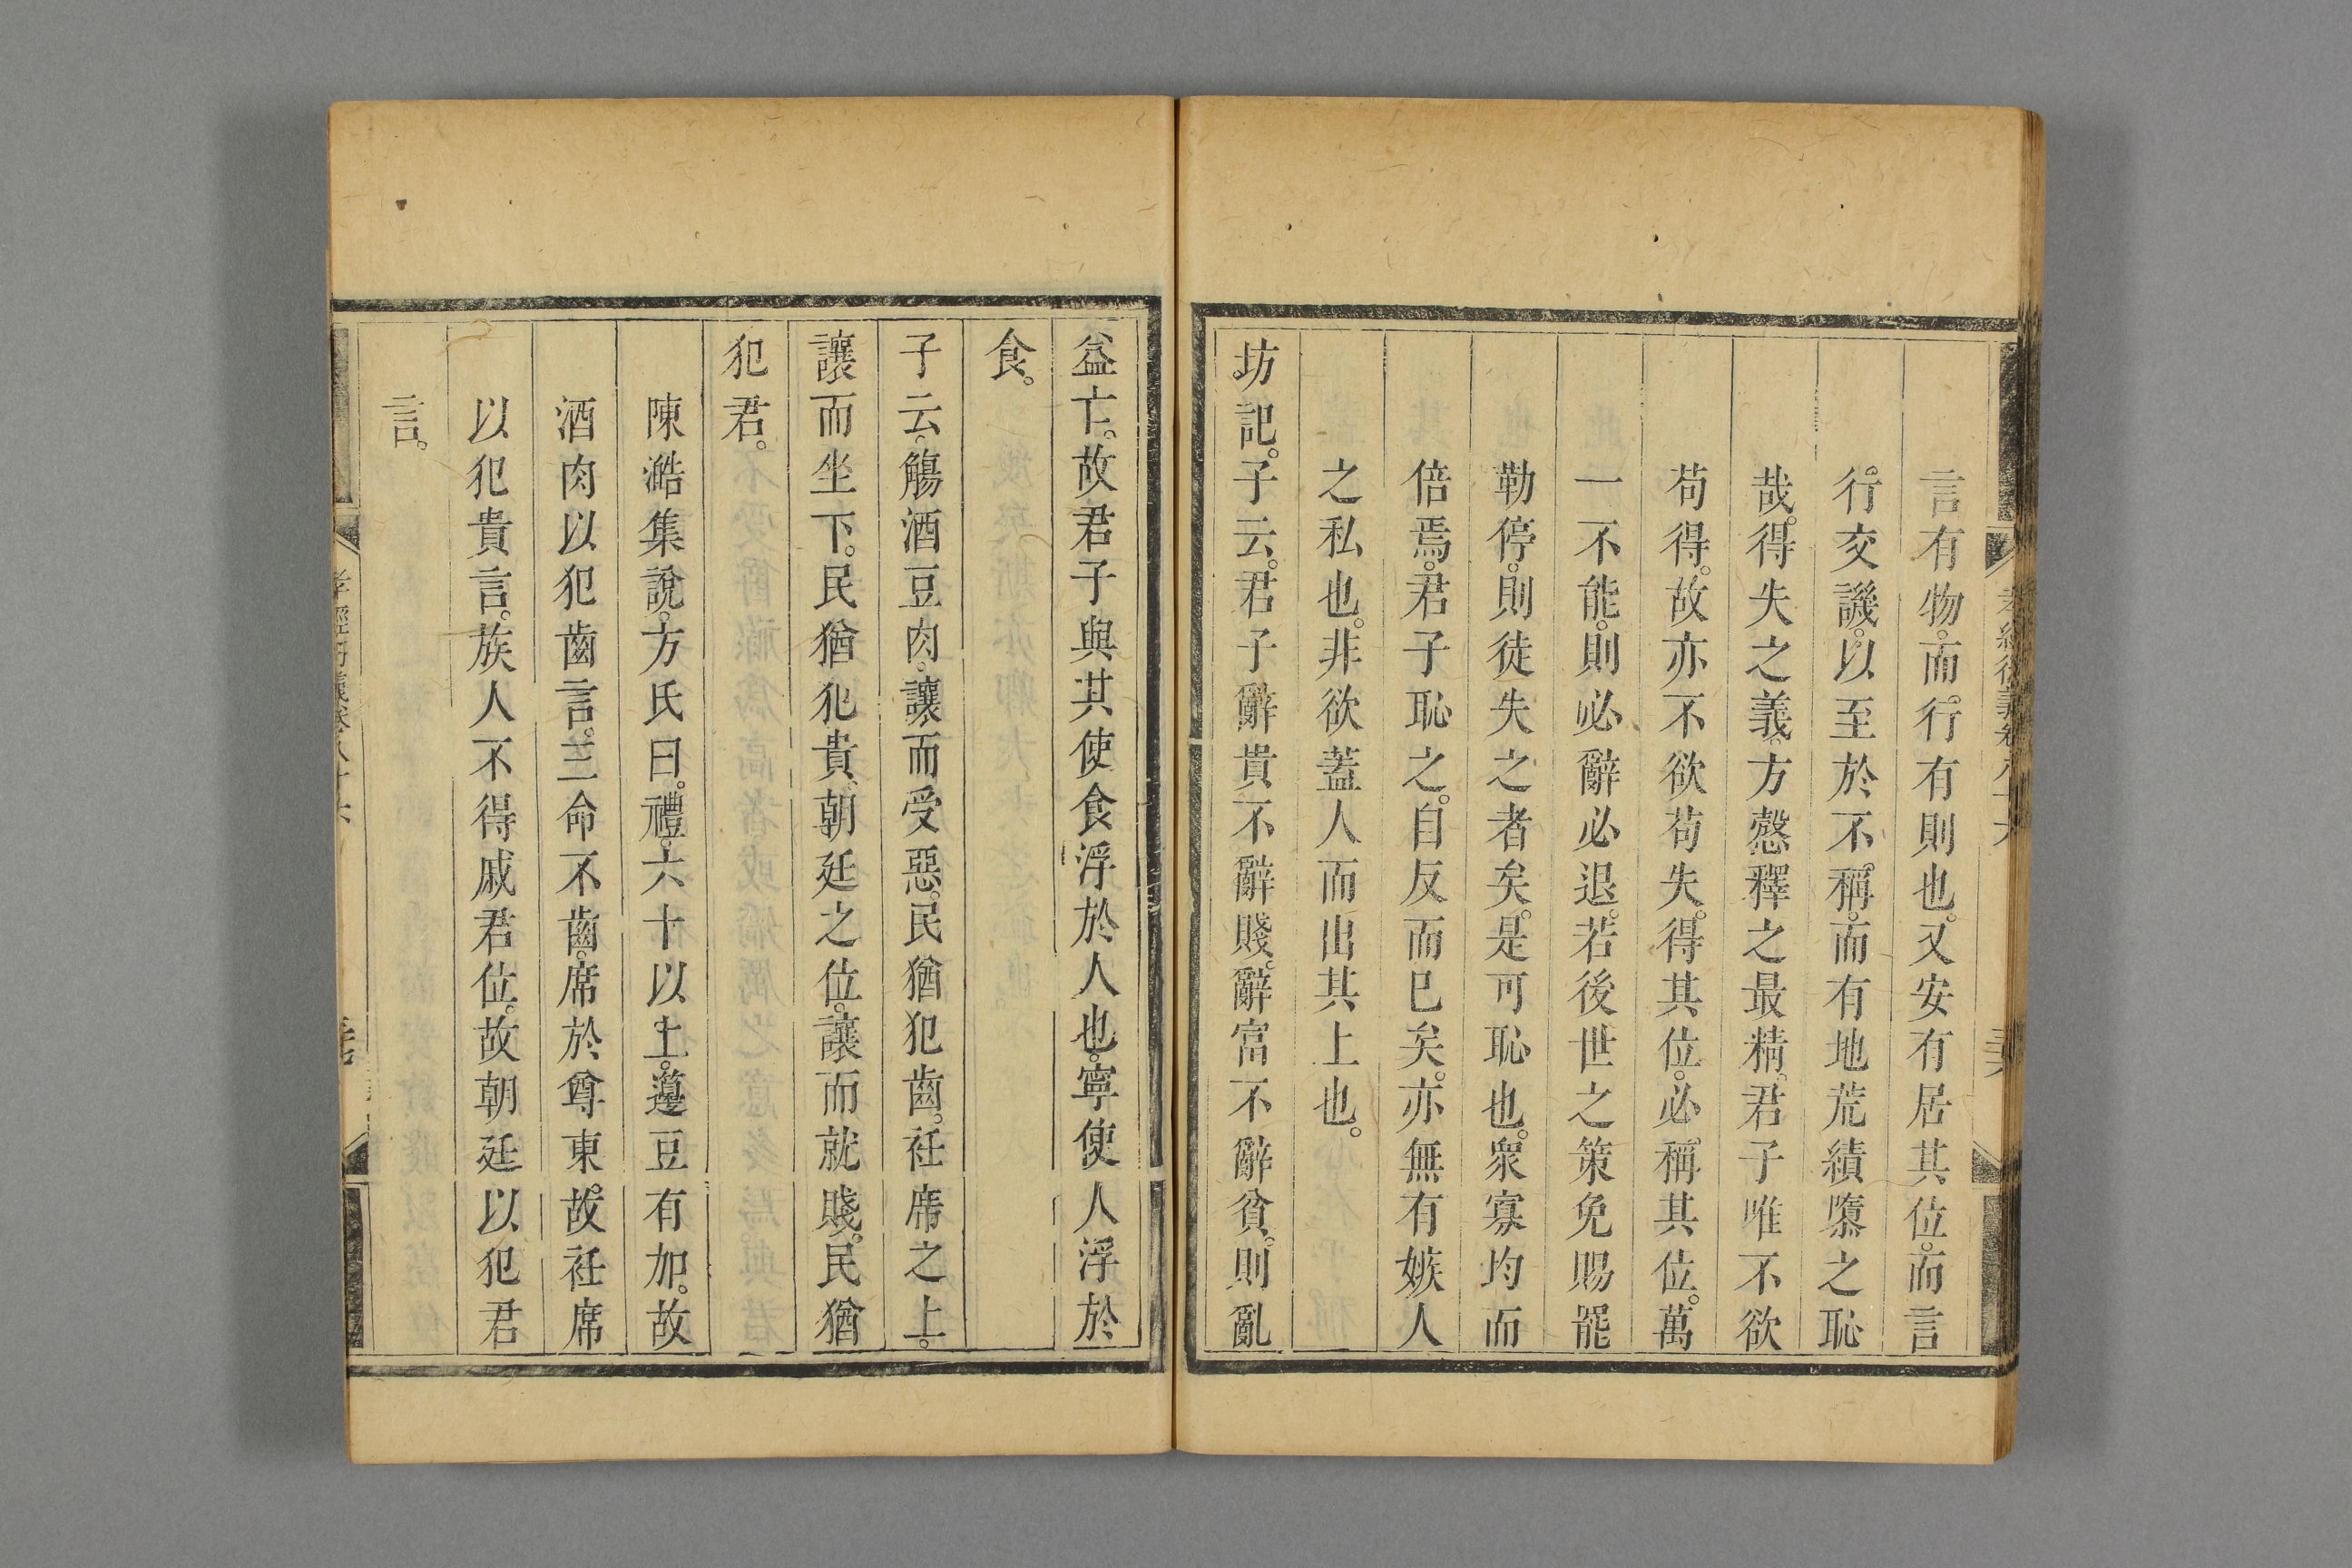 言有物。而。行有則也。又安有居其位。而言
行。交譏。以至於不。稱。而有地荒績隳之恥
哉。得失之義。方慤釋之最精。君子唯不欲
苟得。故亦不欲苟失。得其位。必稱其位。萬
一不能。則必辭必退。若後世之策免賜罷
勒停。則徒失之者矣。是可恥也。衆寡均而
倍焉。君子恥之。自反而已矣。亦無有嫉人
之私也。非欲蓋人而出其上也。
坊記。子云。君子辭貴不辭賤。辭富不辭貧。則亂
益亡。故君子與其使食浮於人也。寧使人浮於
食。
子云。觴酒豆肉。讓而受惡。民猶犯齒。衽席之上。
讓而坐下。民猶犯貴。朝廷之位。讓而就賤。民猶
犯君。
陳澔集說。方氏曰。禮。六十以上。籩豆有加。故
酒肉以犯齒言。三命不齒。席於尊東。故衽席
以犯貴言。族人不得戚君位。故朝廷以犯君
言。